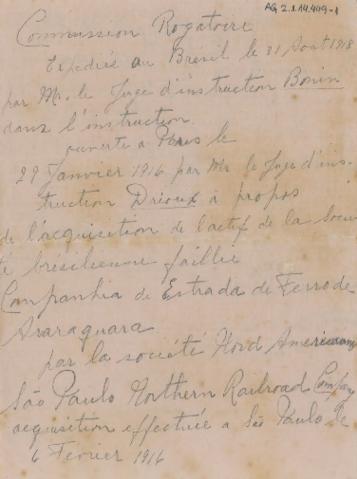 AG 2.1.14.409-1
Commission Rogatoire
Expediée au Brésil le 31 Août 1918
par Mr. le Juge d'instruction Bonin
dans l'instruction
ouverte a Paris le
29 Janvier 1916 par Mr le Juge d'ins-
truction Drioux à propos
de l'acquisition de l'actif de la Socié
té brésilienne faillie
Companhia de Estrada de Ferro de
Araraquara
par la société Nord Américaine
São Paulo Northern Railroad Company
acquisition effectuée a São Paulo le
6 Février 1916